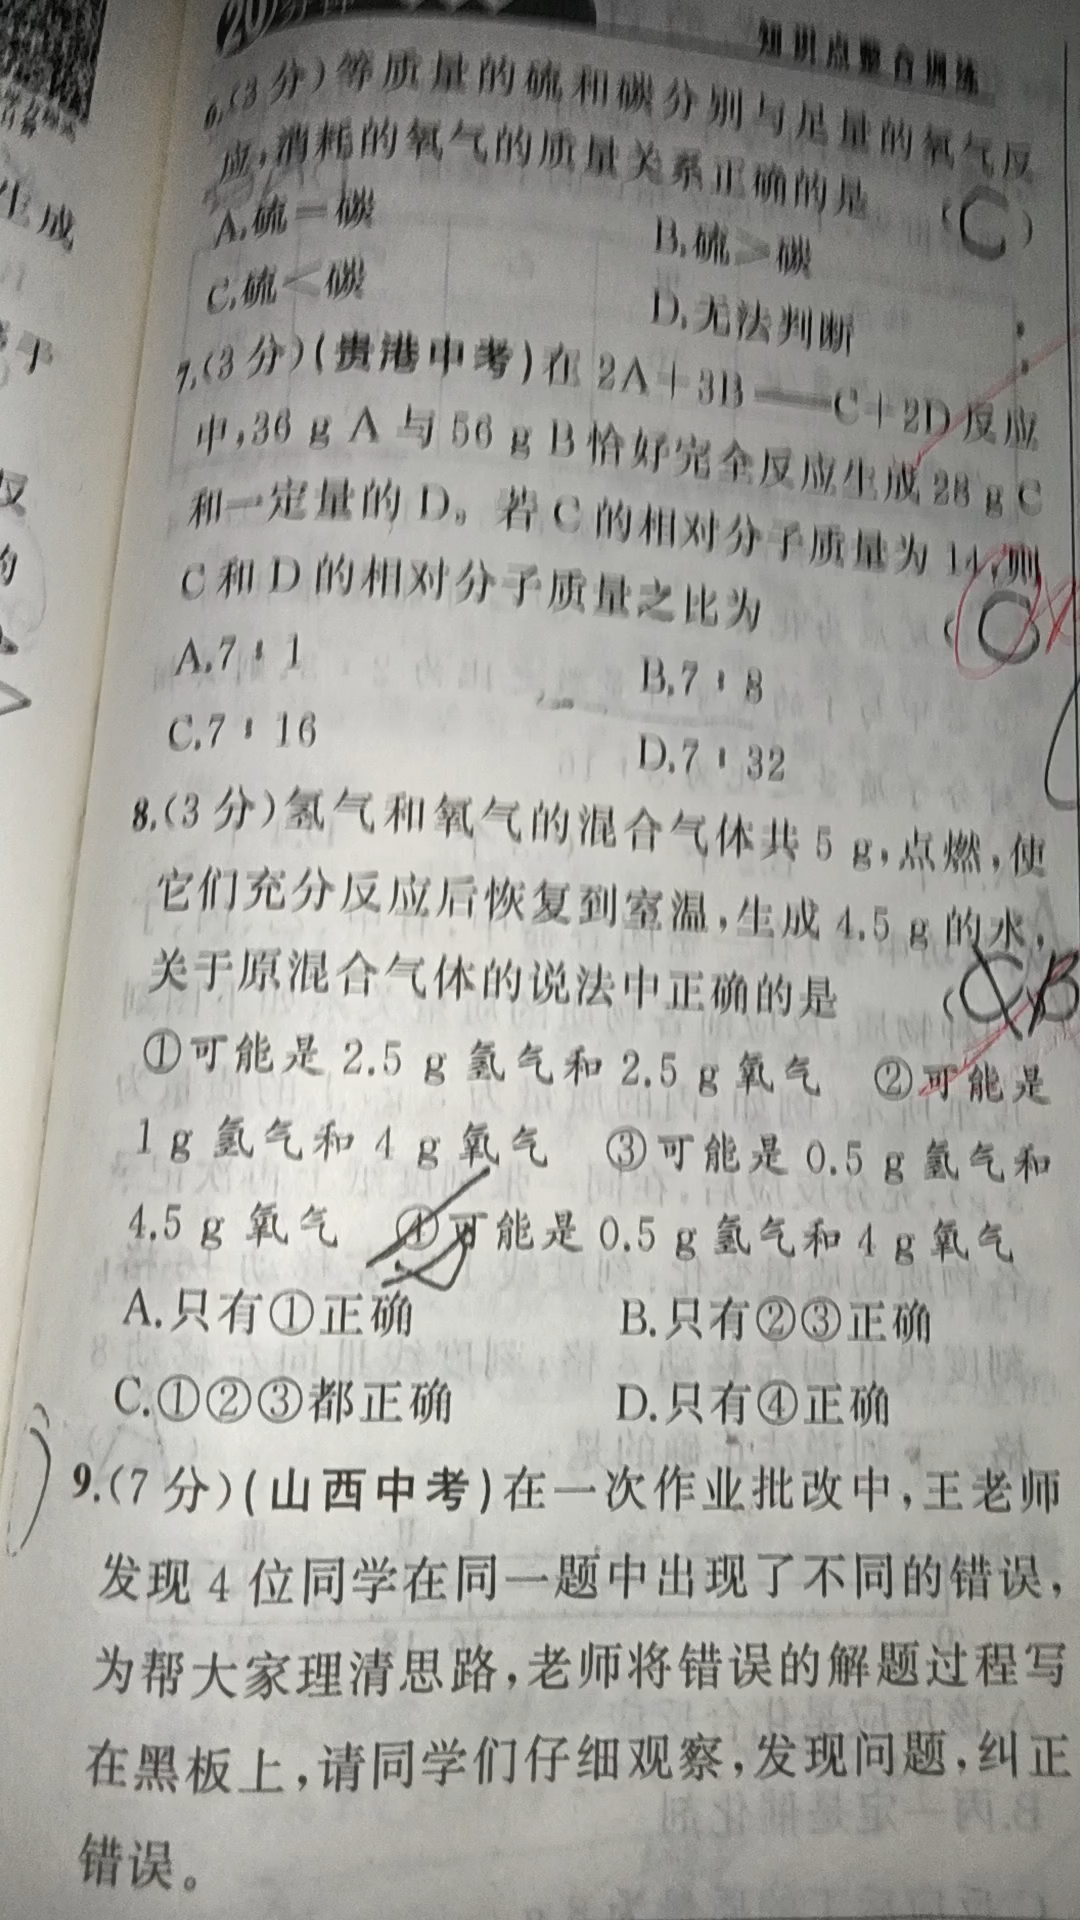 20分钟
知识点整合训练
6.(3分)等质量的硫和碳分别与足量的氧气反
应,消耗的氧气的质量关系正确的是 (C)
A.硫=碳 B.硫>碳
C.硫<碳 D.无法判断
7.(3分)(贵港中考)在 2A+3B══C+2D 反应
中,36 g A 与 56 g B 恰好完全反应生成 28 g C
和一定量的 D。若 C 的相对分子质量为 14,则
C 和 D 的相对分子质量之比为 (C)
A.7∶1 B.7∶8
C.7∶16 D.7∶32
8.(3分)氢气和氧气的混合气体共 5 g,点燃,使
它们充分反应后恢复到室温,生成 4.5 g 的水,
关于原混合气体的说法中正确的是 (B
①可能是 2.5 g 氢气和 2.5 g 氧气 ②可能是
1 g 氢气和 4 g 氧气 ③可能是 0.5 g 氢气和
4.5 g 氧气 ④可能是 0.5 g 氢气和 4 g 氧气
A.只有①正确 B.只有②③正确
C.①②③都正确 D.只有④正确
9.(7分)(山西中考)在一次作业批改中,王老师
发现 4 位同学在同一题中出现了不同的错误,
为帮大家理清思路,老师将错误的解题过程写
在黑板上,请同学们仔细观察,发现问题,纠正
错误。
生成
于
反
的